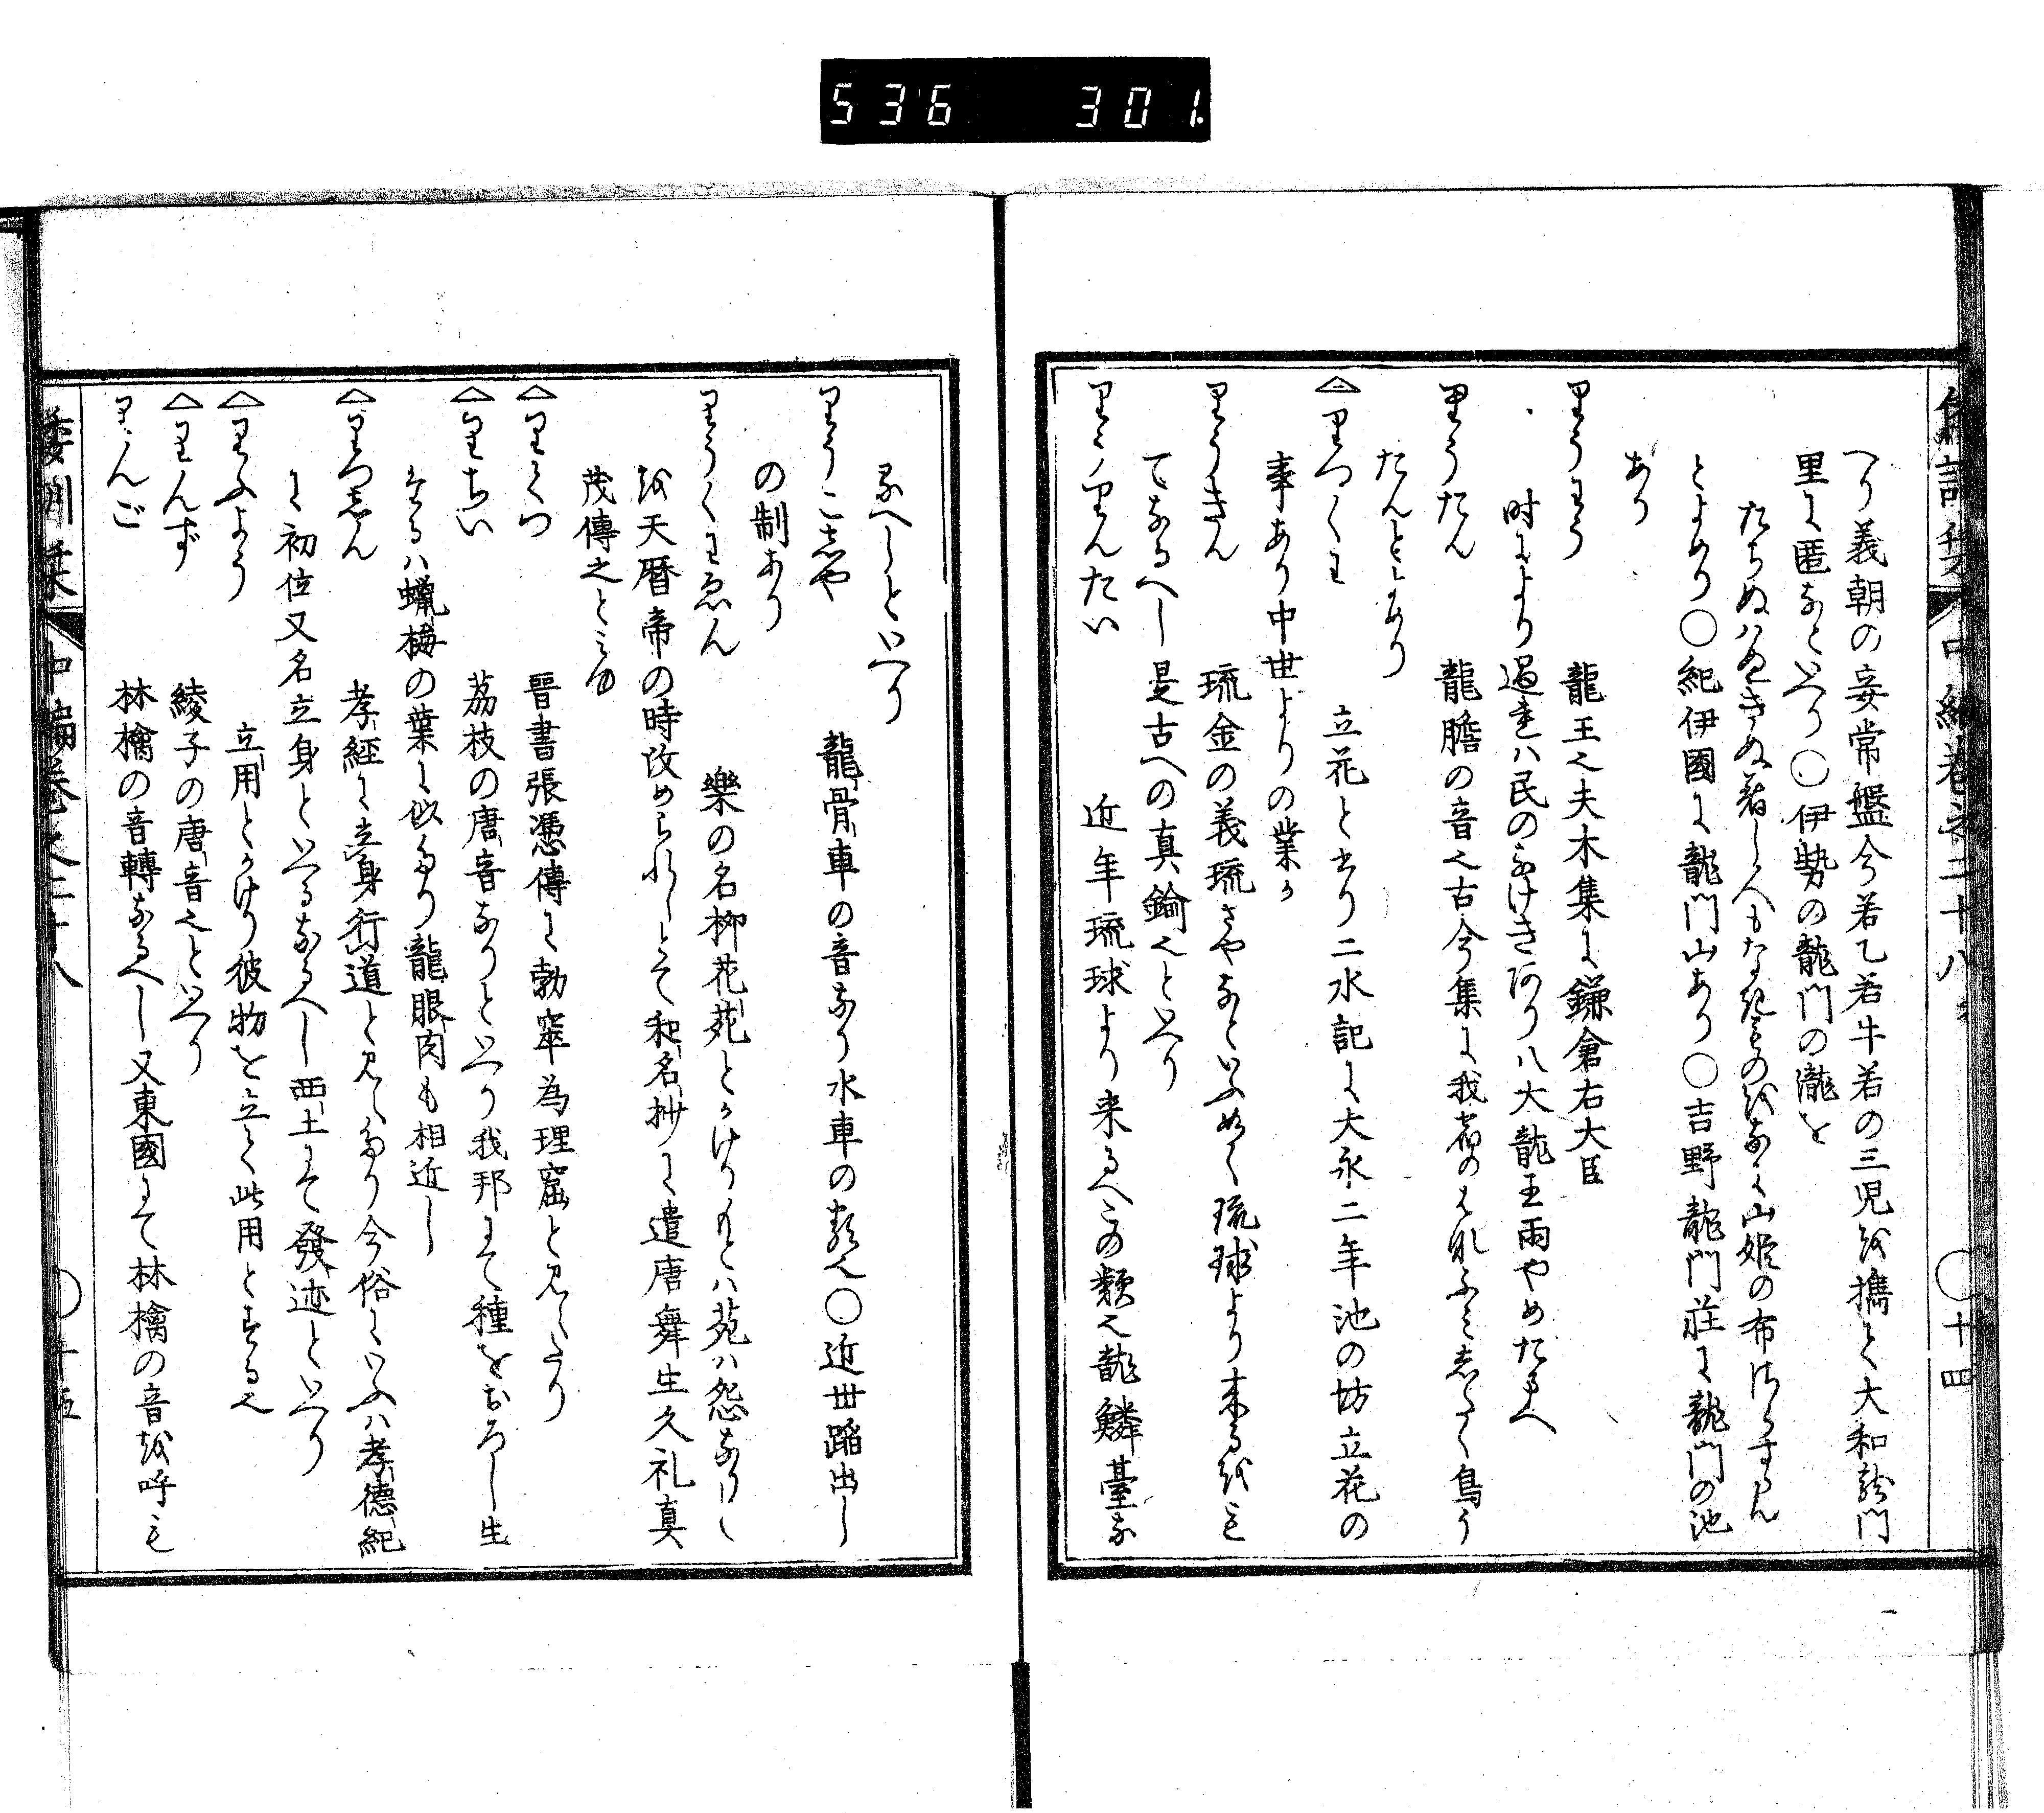 536 301
倭訓栞 中編巻之二十八 〇十四
へり義朝の妾常盤今若乙若牛若の三児を携て大和龍門
里に匿なといへり〇伊勢の龍門の瀧を
たちぬはぬきぬ着し人もなきものをなに山姫の布さらすらん
とよめり〇紀伊國に龍門山あり〇吉野龍門荘に龍門の池
あり
りうわう 龍王也夫木集に鎌倉右大臣
時により過れは民のなけきなり八大龍王雨やめたまへ
りうたん 龍膽の音也古今集に我宿のはなふみしたく鳥う
たんとよめり
△りつくわ 立花と書り二水記に大永二年池の坊立花の
事あり中世よりの業か
りうきん 琉金の義琉さやなといふ如く琉球より来るをも
てなるへし是古への真鍮也といへり
りうりんたい 近年琉球より来るへこの類也龍鱗臺な
るへしといへり
りうこしや 龍骨車の音なり水車の類也〇近世踏出し
の制あり
りうくわゑん 樂の名柳花苑とかけりもとは苑は怨なりし
を天暦帝の時改められしとそ和名抄に遣唐舞生久礼真
茂傳之とみゆ
△りくつ 晋書張憑傳に勃窣為理窟と見えたり
△りちい 茘枝の唐音なりといへり我邦にて種をおろし生
そるは蠟梅の葉に似たり龍眼肉も相近し
△りつしん 孝經に立身行道と見えたり今俗にいふは孝徳紀
に初位又名立身といへるなるへし西土にて發迹といへり
△りふよう 立用とかけり彼物を立て此用とする也
△りんず 綾子の唐音也といへり
りんご 林檎の音轉なるへし又東國にて林檎の音を呼も
倭訓栞 中編巻之二十八 〇十五